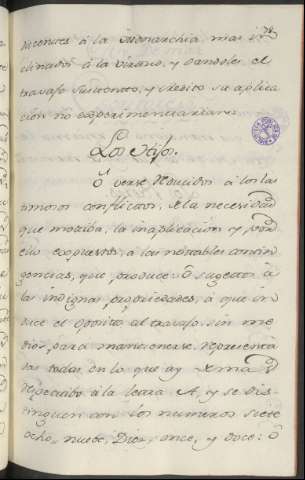 necentes á la Monarchia mas in
clinados á la virtud, y dandoles el
travajo sustento, y credito su aplica
cion no experimentarian.
Los Hijos.
O verse reducidos á los las
timosos conflictos, de la necesidad
que motiva, la inaplicacion y por
ello expuestos, á las notables contin
gencias, que produce: ó sugetos á
las indignas propriedades, á que in
duce el oposito al travajo, sin me
dios, para mantenerse. representa
das todas en lo que ay
de pecado á la letra A, y se dis
tinguen con los numeros siete
ocho, nuebe, Diez, once, y doce: ó